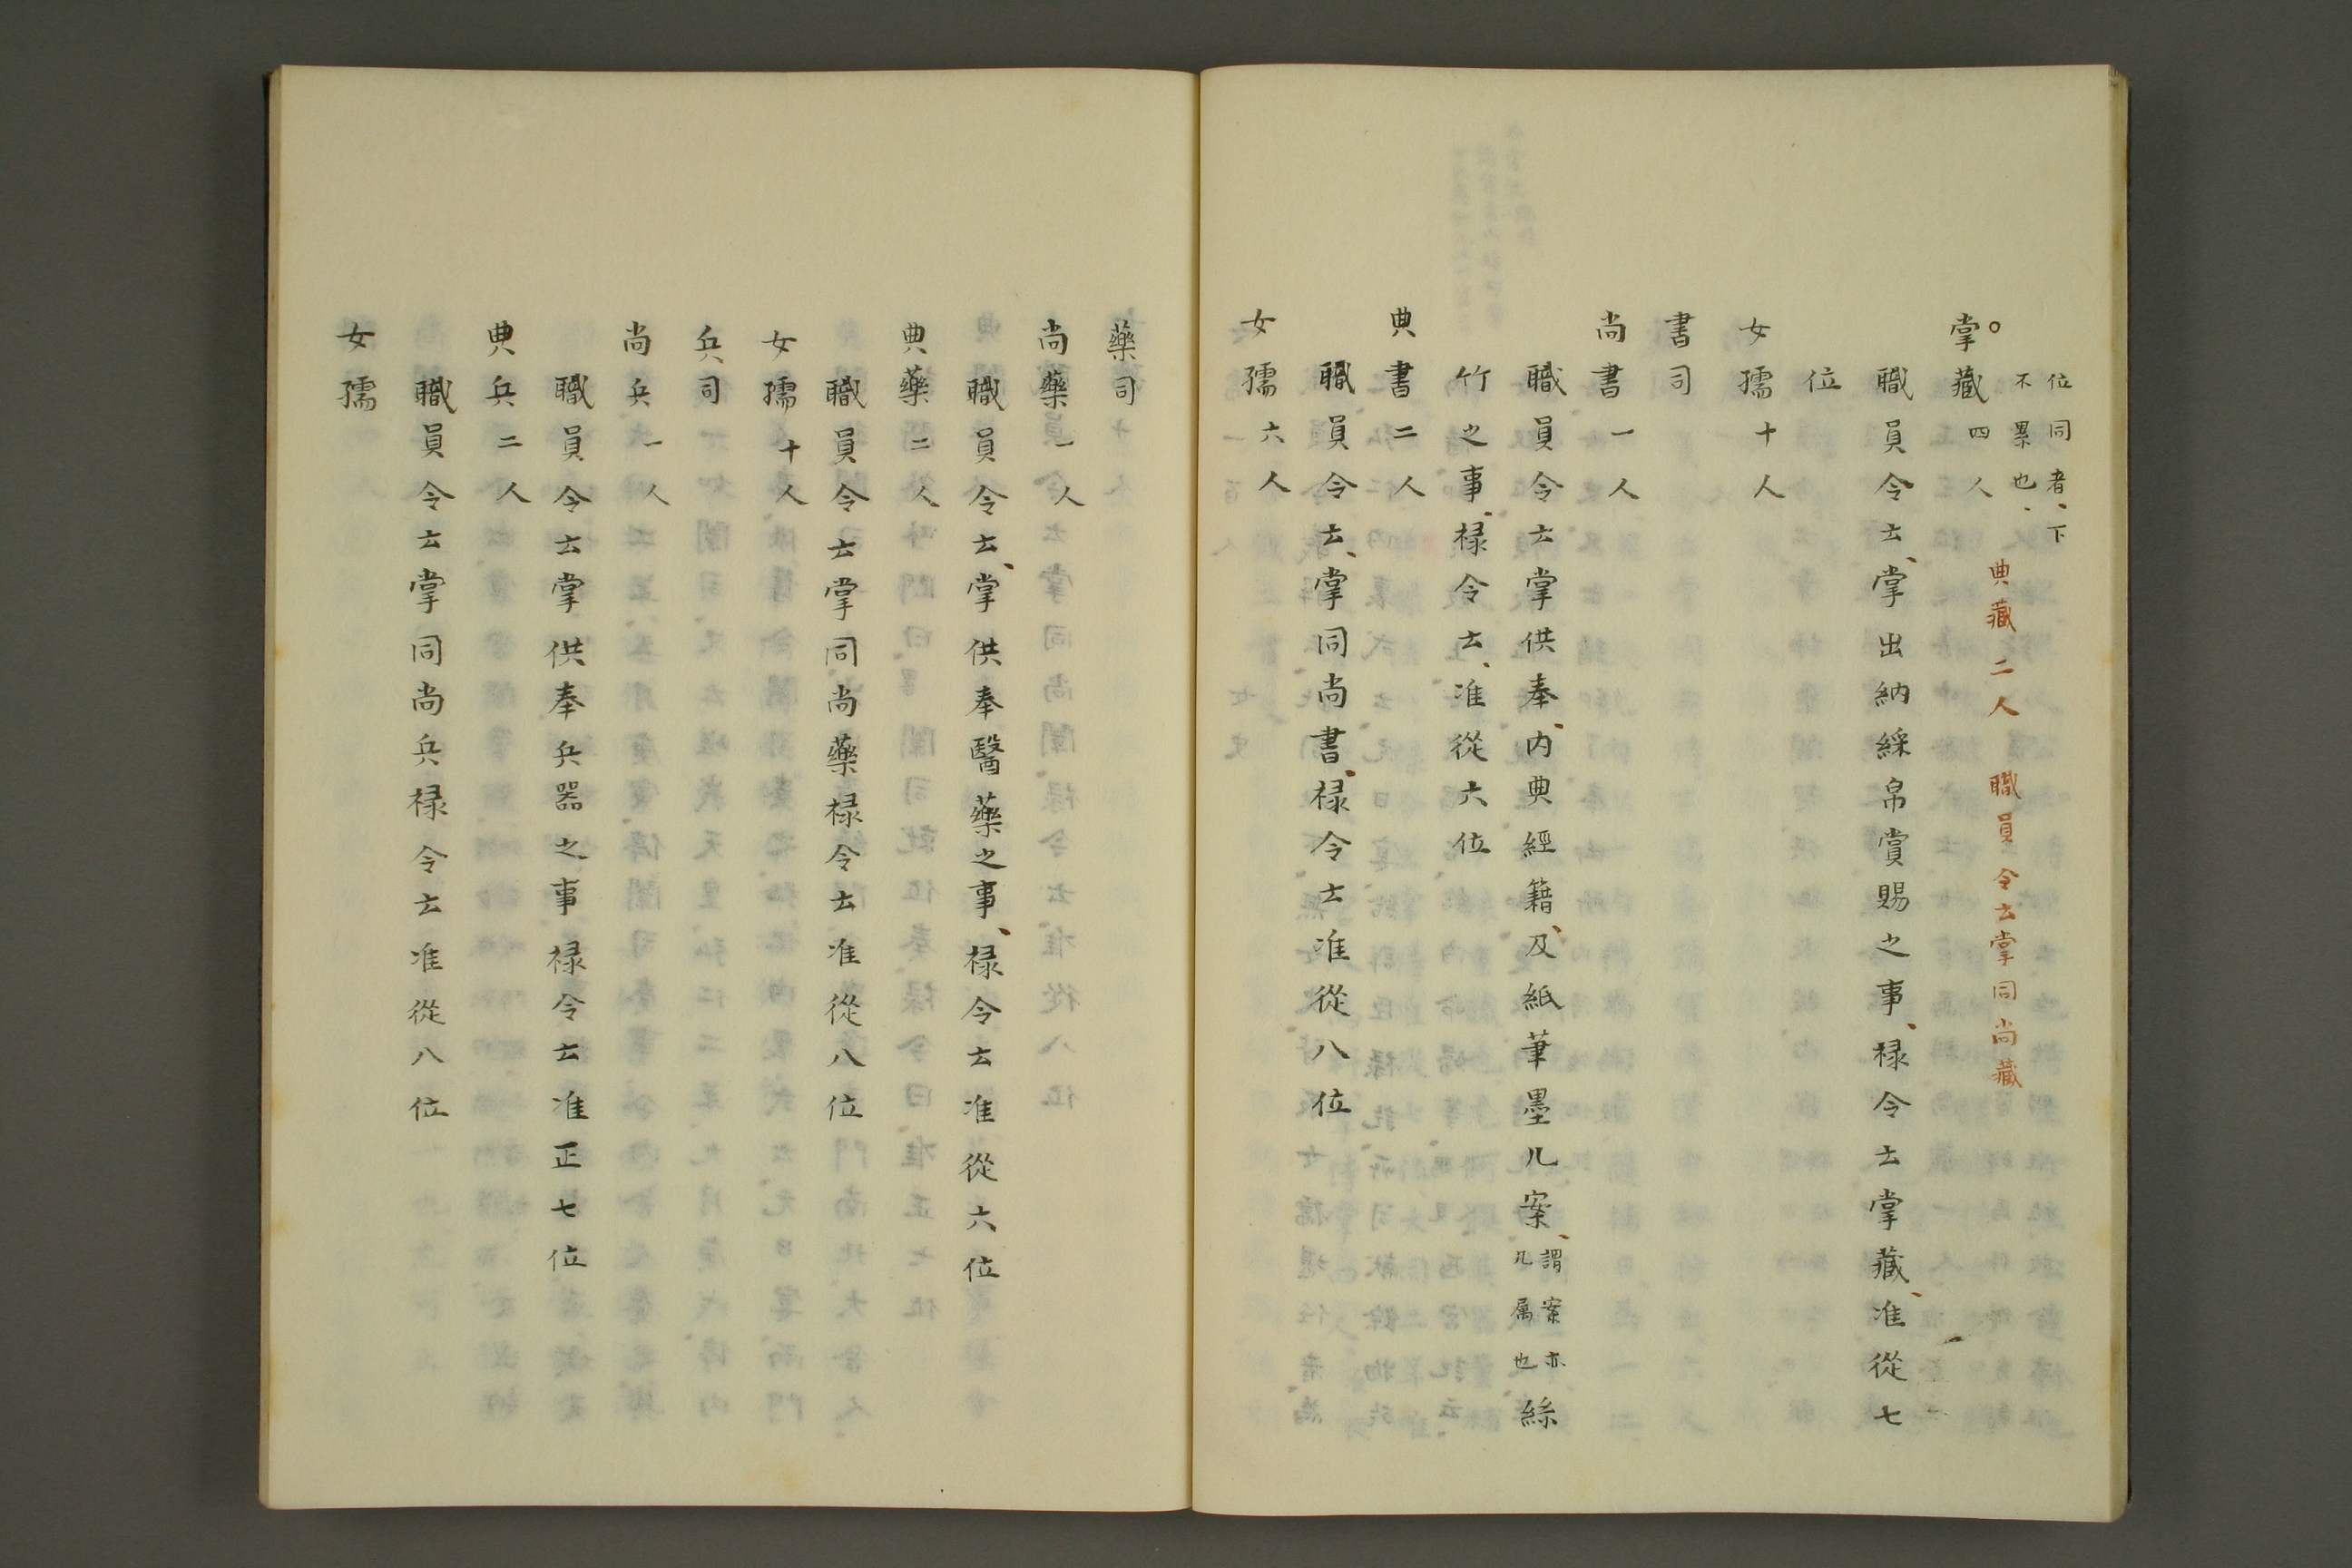 位同者、下
不累也、
典藏二人　職員令去掌同尚藏
掌藏四人
職員令去、掌出納綵帛賞賜之事、禄令去掌藏、准從七
位
女孺十人
書司
尚書一人
職員令去掌供奉、内典經籍、及紙筆墨儿案、謂案亦儿属也絲
竹之事、禄令去、准從六位
典書二人
職員令去、掌同尚書、禄令去准從八位
女孺六人
藥司
尚藥一人
職員令去、掌供奉醫藥之事、禄令去准從六位
典藥二人
職員令去掌同尚藥禄令去准從八位
女孺十人
兵司
尚兵一人
職員令去掌供奉兵器之事禄令去准正七位
典兵二人
職員令去掌同尚兵禄令去准從八位
女孺